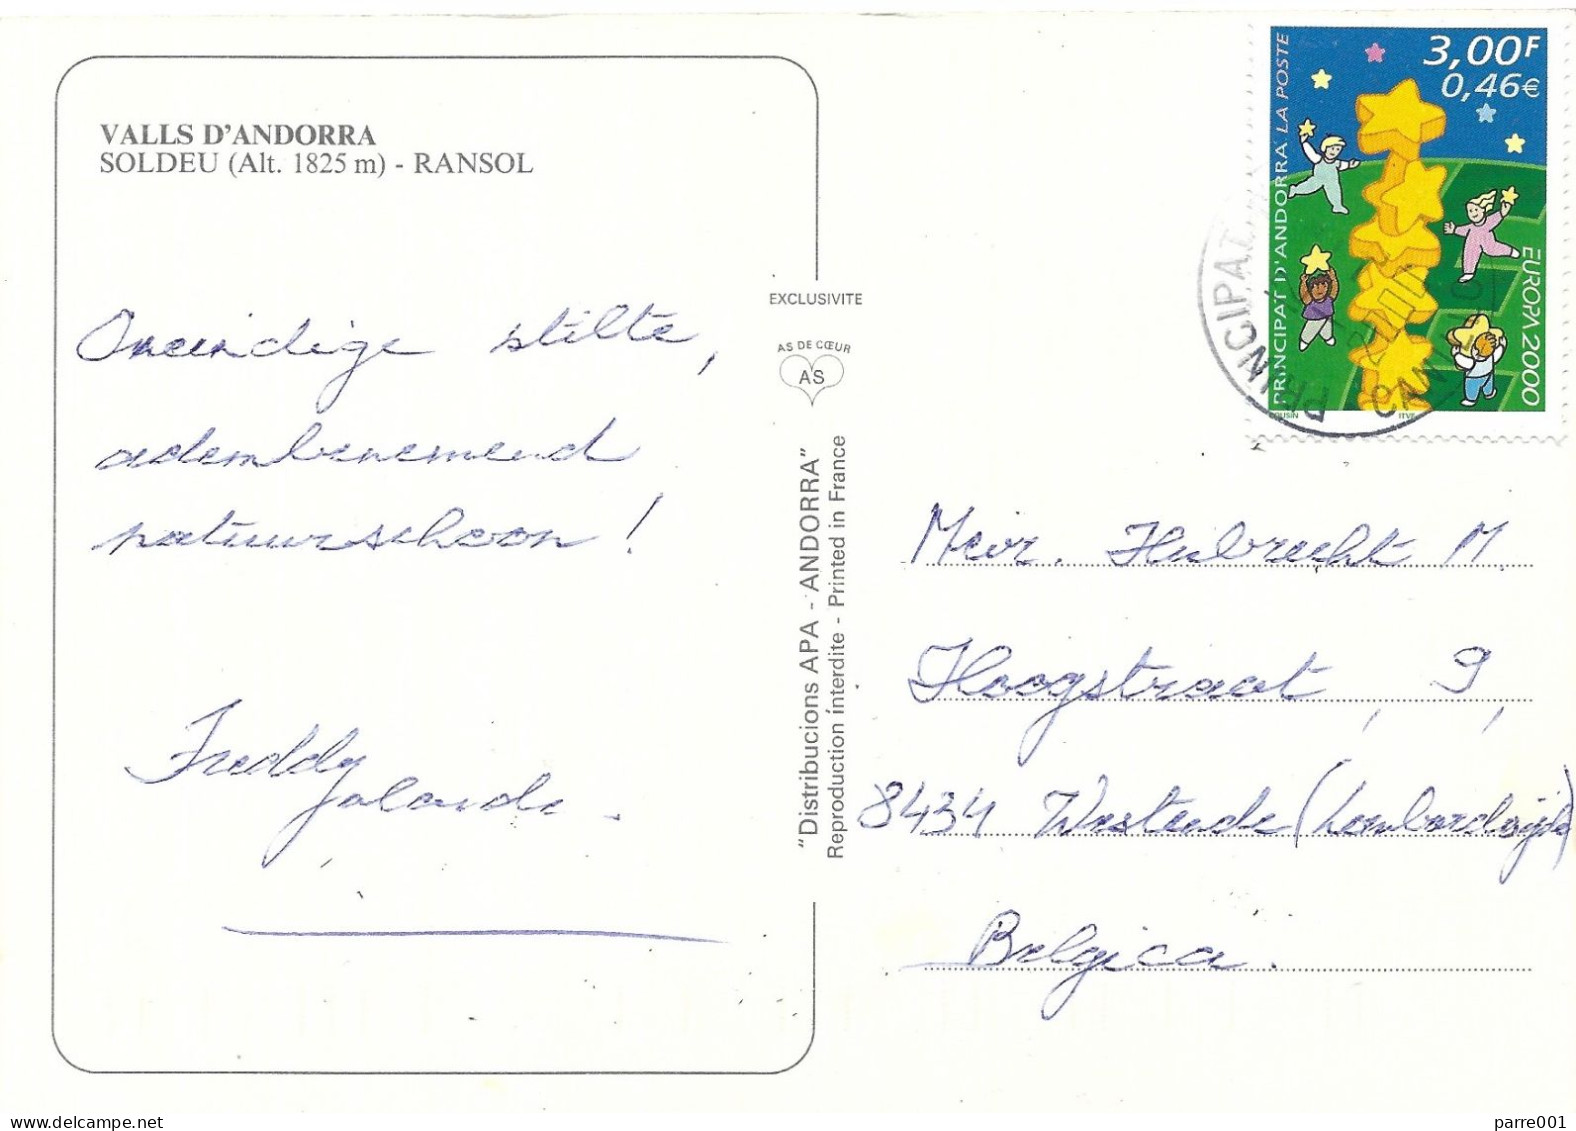 VALLS D'ANDORRA
SOLDEU (Alt. 1825 m) - RANSOL
Oneindige stilte,
adembenemend
natuurschoon!
Freddy
EXCLUSIVITE
AS DE CŒUR
AS
"Distribucions APA - ANDORRA"
Reproduction interdite - Printed in France
3,00F
0,46€
PRINCIPAT D'ANDORRA LA POSTE
EUROPA 2000
COUSIN ITVF
PRINCIPAT
CANILLO
Mevr. Hubrecht M
Hoogstraat, 9,
8434 Westende (Lombardsijde)
Belgica.
parre001